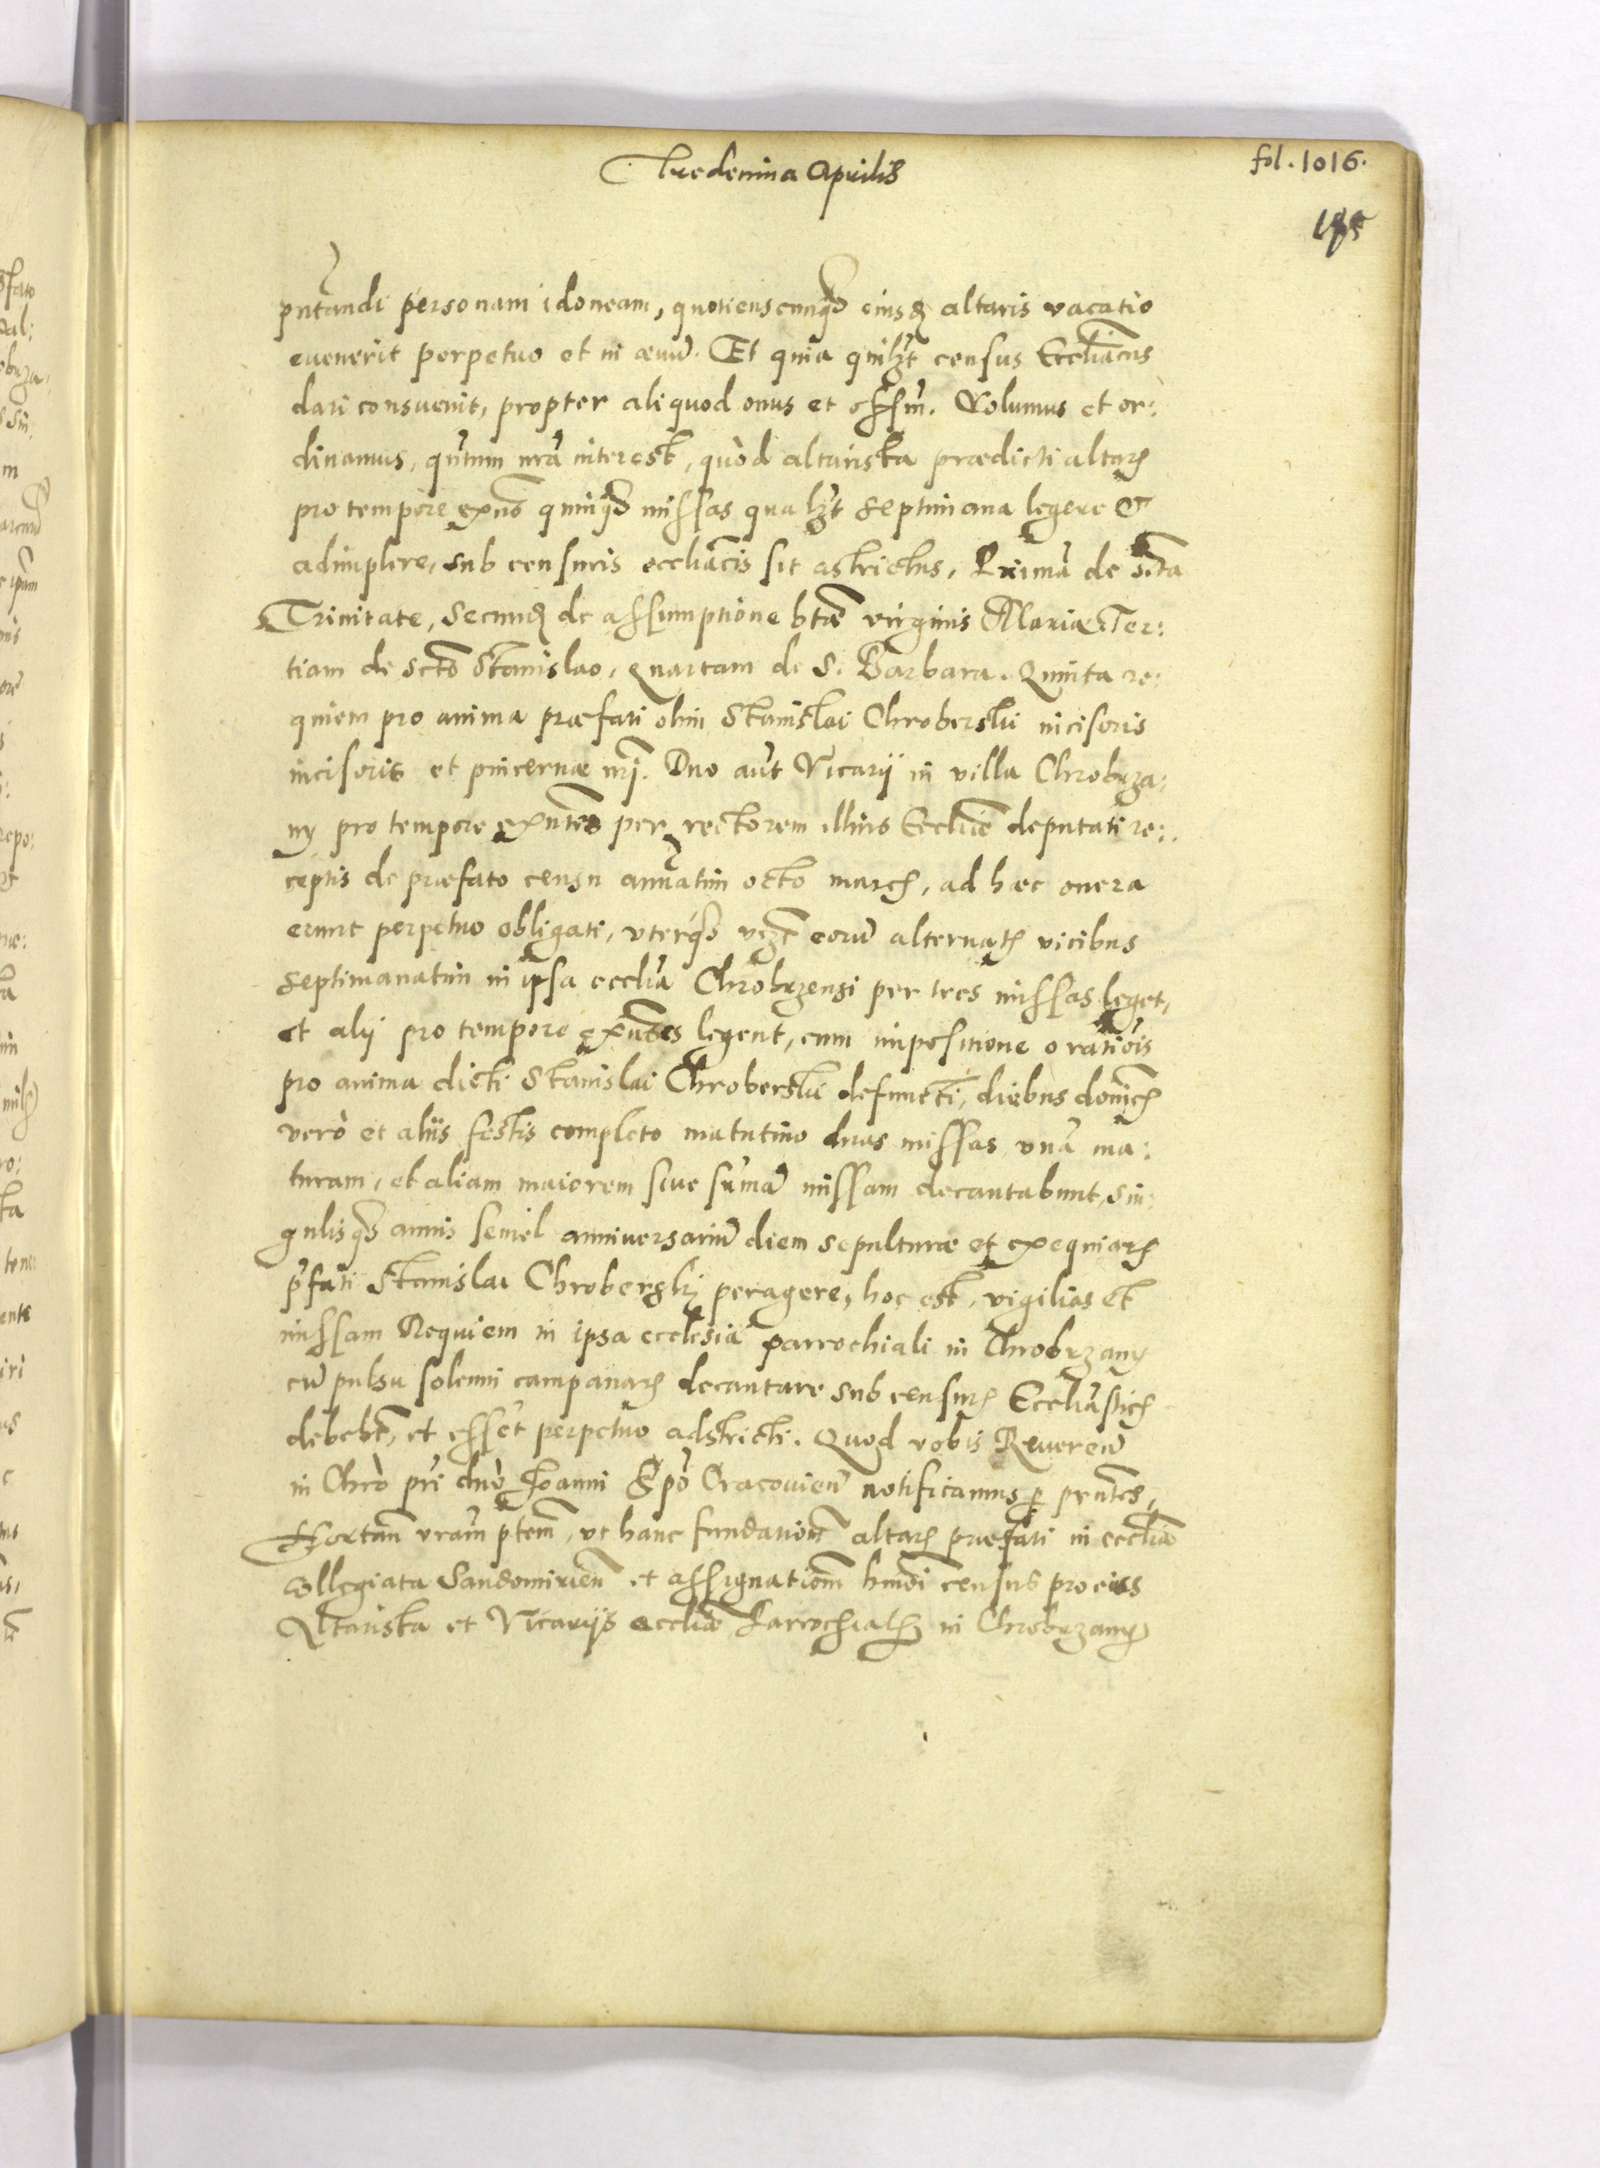 Tredecima Aprilis
fol. 1016.
pñtandi personam idoneam, quotienscunq₃ eiusd altaris vacatio
evenerit perpetuo et in ævum. Et quia quilzt census Eccliãcus
dari consuevit, propter aliquod onus et offm. Volumus et or:
dinamus, qñtum nrã interest, quòd altarista prædicti altaris
pro tempore exñs quinq₃ missas qualzt septimana legere &
adimplere, sub censuris eccliãcis sit astrictus, Primã de Scta
Trinitate, Secund de assumptione btæ virginis Mariæ Ter:
tiam de Scto Stanislao, quartam de S. Barbara. Quinta re:
quiem pro anima præfati olim Stanislai Chroberski incisoris
incisoris et pincernæ nrj. Duo aut Vicarij in villa Chrobrza:
ny pro tempore exñtes per rectorem illius Eccliæ deputati re:
ceptis de præfato censu annuatim octo marcis, ad hæc onera
erunt perpetuo obligati, vterq₃ vizt eorũ alternatis vicibus
septimanatim in ipsa ecclia Chrobrzensi per tres missas leget,
et alij pro tempore exñtes legent, cum impositione orationis
pro anima dicti Stanislai Chroberski defuncti, diebus donicis
verò et aliis festis completo matutino duas missas vnã ma:
turam, et aliam maiorem sive sũmã missam decantabunt, sin:
gulisq₃ annis semel anniversariũ diem sepulturæ et exequiaris
pfati Stanislai Chroberskj peragere, hoc est, vigilias et
missam Requiem in ipsa ecclesia parrochiali in Chrobrzany
cũ pulsu solenni campanaris decantare sub censuris Eccliasticis
debebt, et esset perpetuo adstricti. Quod vobis Reveren
in Chrõ pri dnõ Joanni Epõ Cracovien notificamus p prñtes,
Hortan vram ptem, vt hanc fundationem altaris præfati in ecclia
collegiata Sandomirien et assignationem hmõi census pro eius
Altarista et Vicarijs eccliæ Parrochialis in Chrobrzany